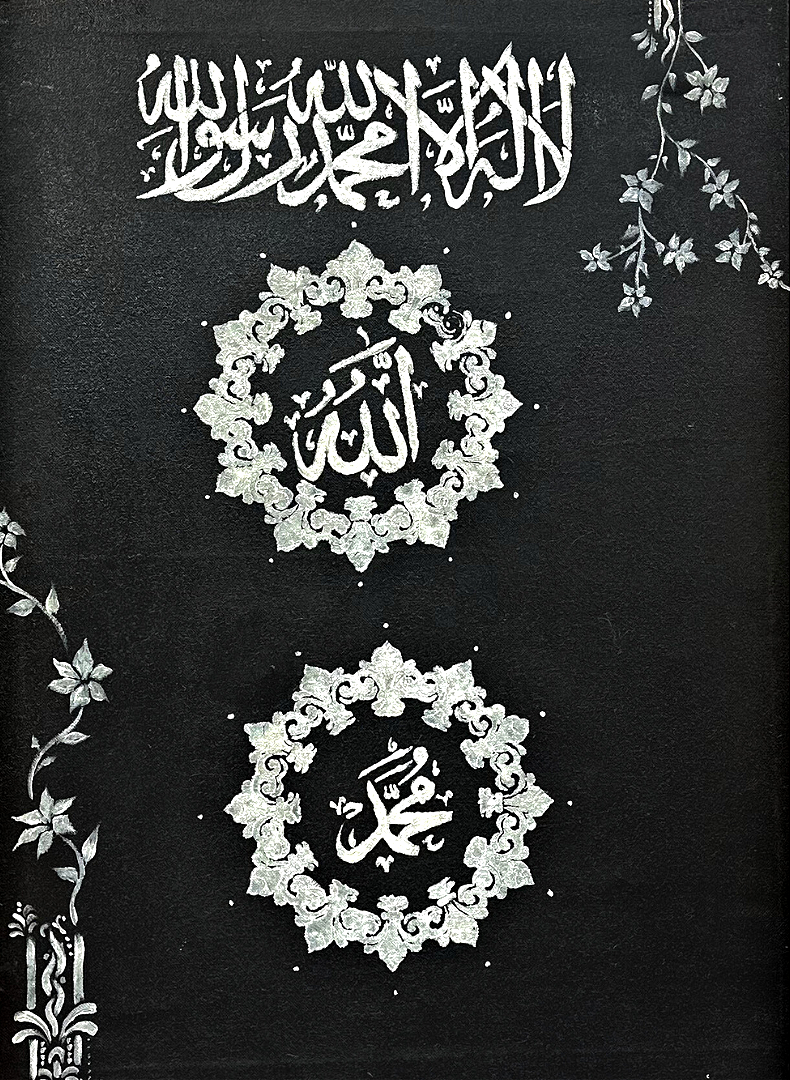 لا إله إلا الله محمد رسول الله
الله
محمد